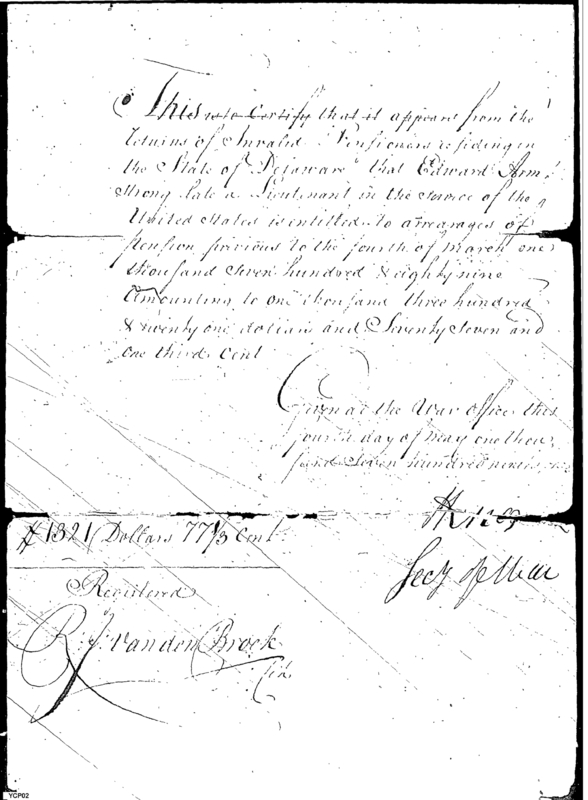 This is to Certify that it appears from the
returns of Invalid Pensioners residing in
the State of Delaware that Edward Arm
strong late a Lieutenant in the service of the
United States is entitled to arrearages of
Pension previous to the fourth of March one
thousand seven hundred & eighty nine
amounting to one thousand three hundred
& twenty one dollars and Seventy Seven and
one third Cent
Given at the War office this
fourth day of May one thou
sand seven hundred ninety
HKnox
Secy of War
$ 1321 Dollars 77 1/3 Cent
Registered
R. J. Vanden Broek
YCP02